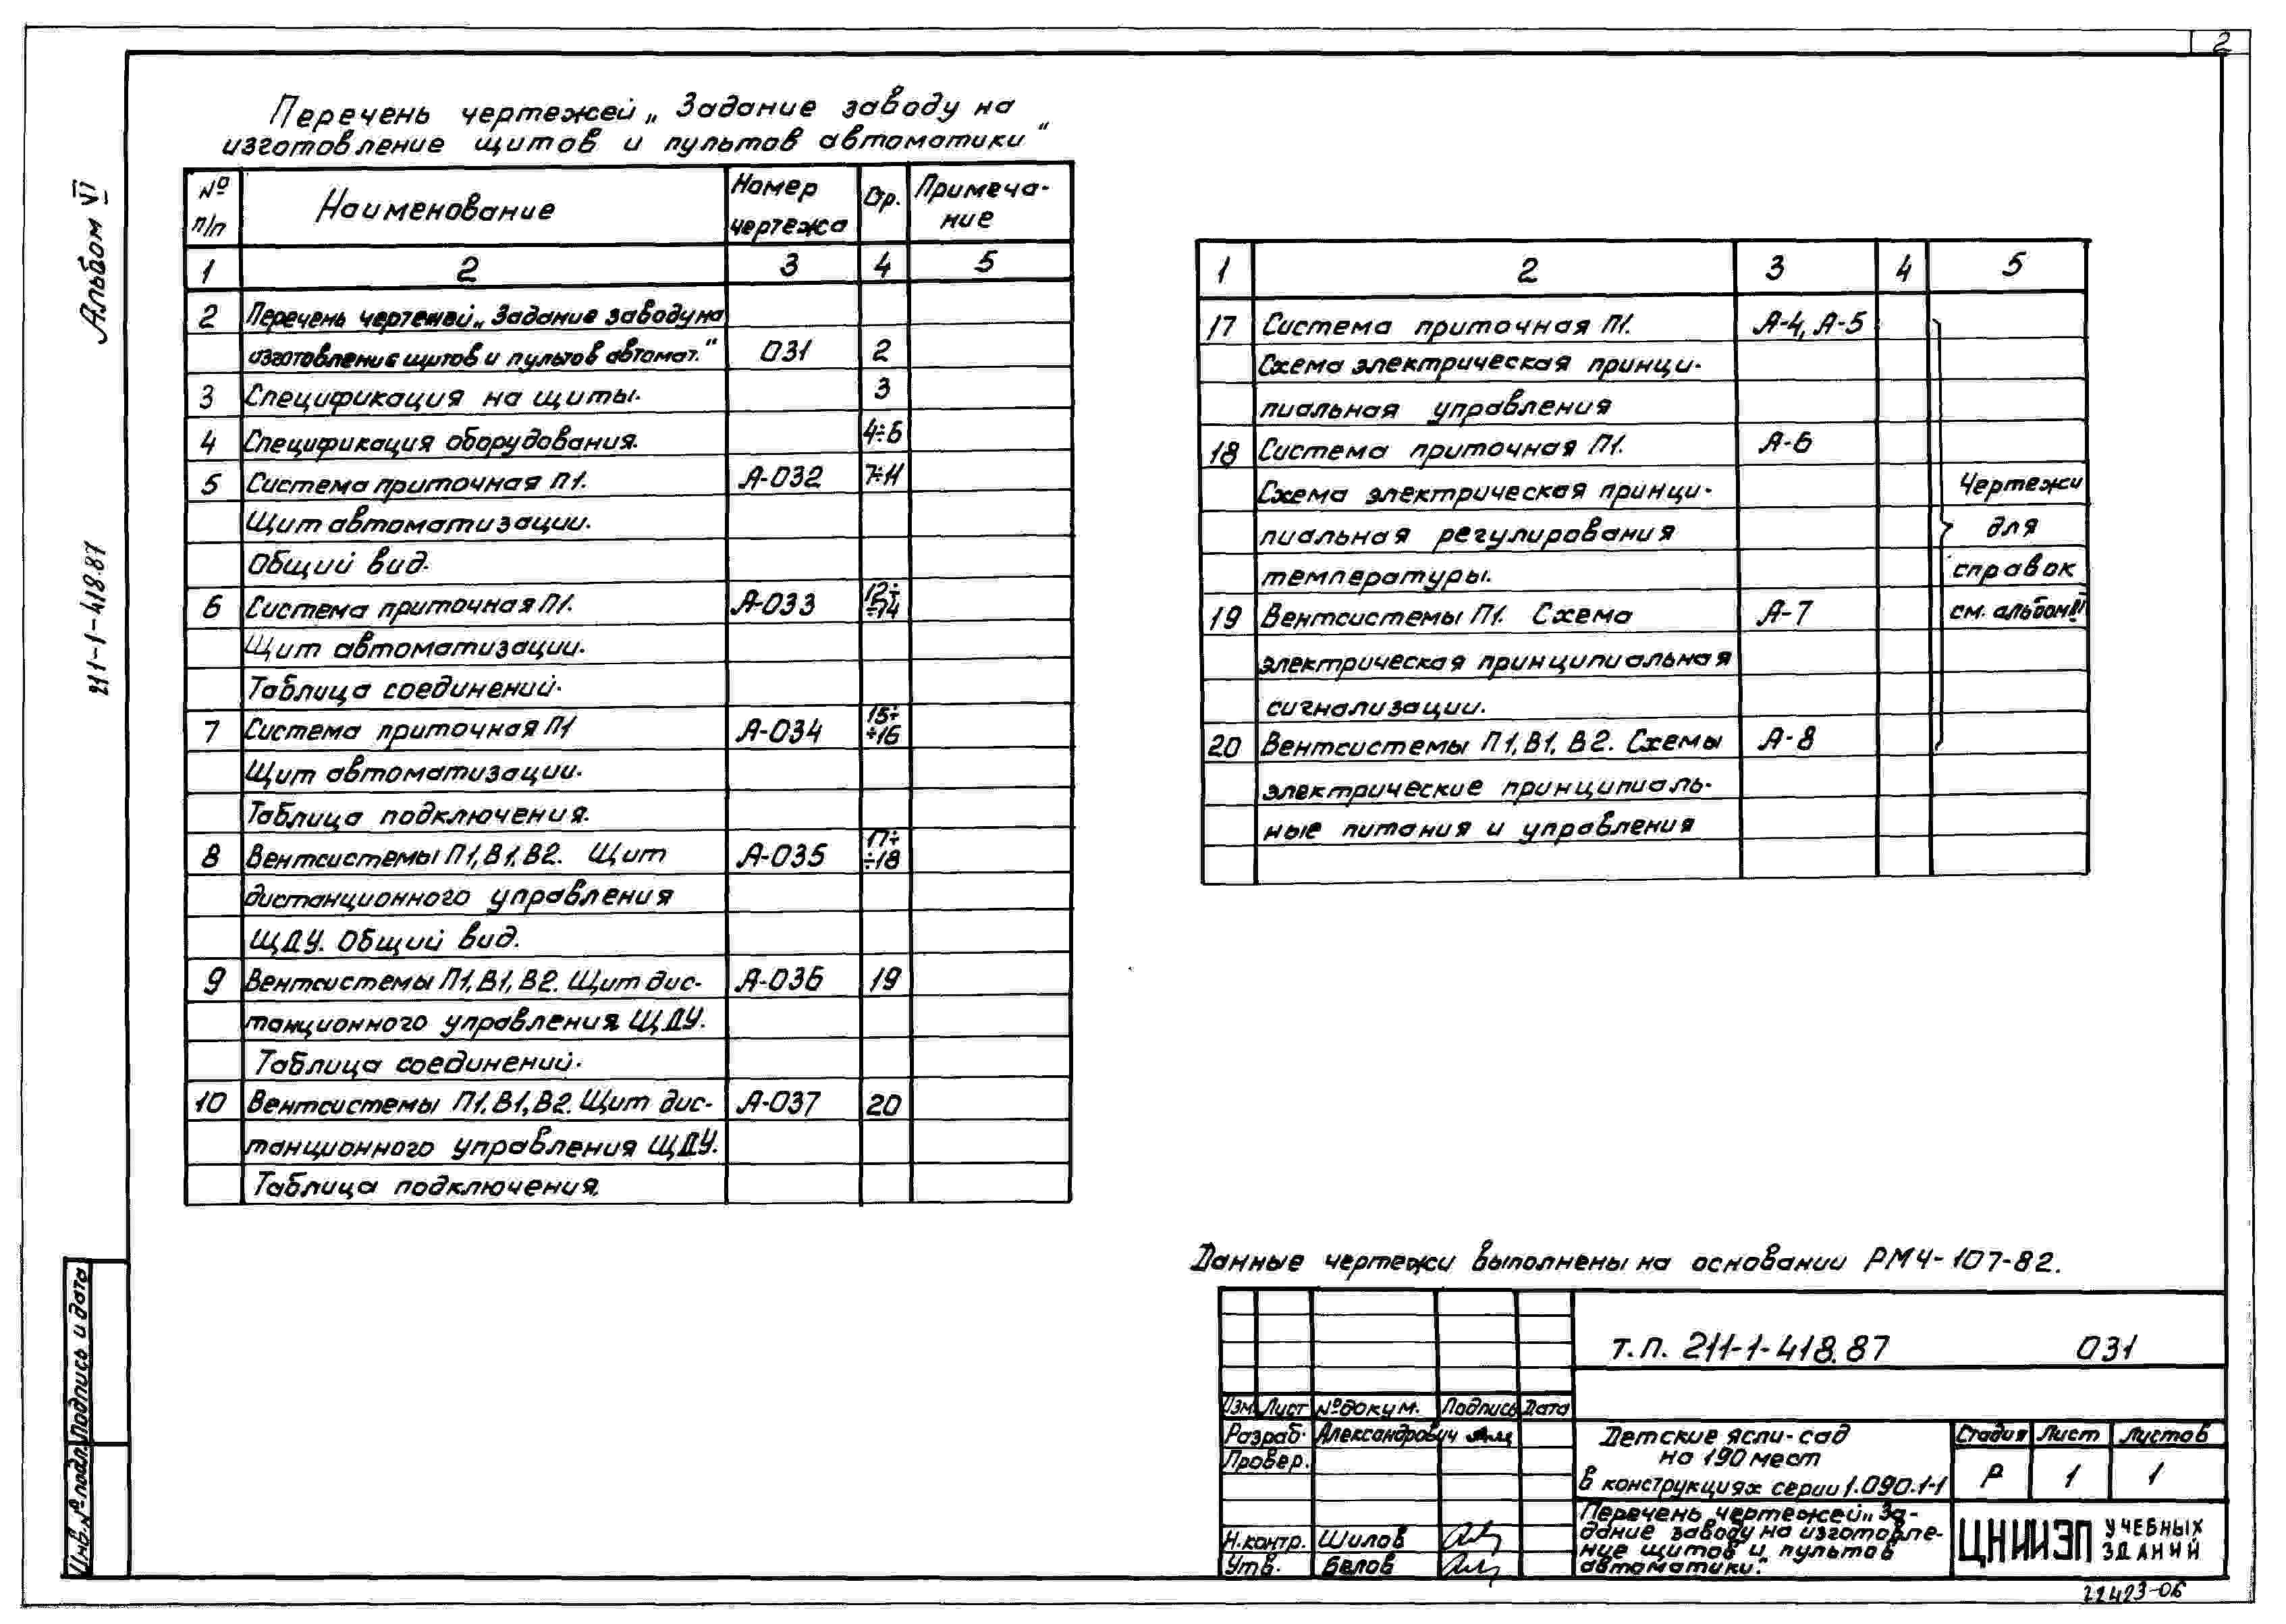 2
Перечень чертежей „Задание заводу на
изготовление щитов и пультов автоматики“
№ п/п Наименование Номер чертежа Стр. Примеча-ние
1 2 3 4 5
2 Перечень чертежей „Задание заводу на
изготовление щитов и пультов автомат.“ 031 2
3 Спецификация на щиты. 3
4 Спецификация оборудования. 4÷6
5 Система приточная П1. А-032 7÷11
Щит автоматизации.
Общий вид.
6 Система приточная П1. А-033 12÷÷14
Щит автоматизации.
Таблица соединений.
7 Система приточная П1 А-034 15÷÷16
Щит автоматизации.
Таблица подключения.
8 Вентсистемы П1, В1, В2. Щит А-035 17÷÷18
дистанционного управления
ЩДУ. Общий вид.
9 Вентсистемы П1, В1, В2. Щит дис- А-036 19
танционного управления ЩДУ.
Таблица соединений.
10 Вентсистемы П1, В1, В2. Щит дис- А-037 20
танционного управления ЩДУ.
Таблица подключения.
1 2 3 4 5
17 Система приточная П1. А-4, А-5
Схема электрическая принци-
пиальная управления
18 Система приточная П1. А-6
Схема электрическая принци- Чертежи
пиальная регулирования для
температуры. справок
19 Вентсистемы П1. Схема А-7 см. альбом
электрическая принципиальная
сигнализации.
20 Вентсистемы П1, В1, В2. Схемы А-8
электрические принципиаль-
ные питания и управления
Данные чертежи выполнены на основании РМ4-107-82.
т.п. 211-1-418.87 031
Изм. Лист № докум. Подпись Дата
Разраб. Александрович
Провер.
Н.контр. Шилов
Утв. Белов
Детские ясли-сад
на 190 мест
в конструкциях серии 1.090.1-1
Стадия Лист Листов
Р 1 1
Перечень чертежей „За-
дание заводу на изготовле-
ние щитов и пультов
автоматики.“
ЦНИИЭП УЧЕБНЫХ
ЗДАНИЙ
22423-06
Альбом VI
211-1-418.87
Подпись и дата
Инв. № подл.